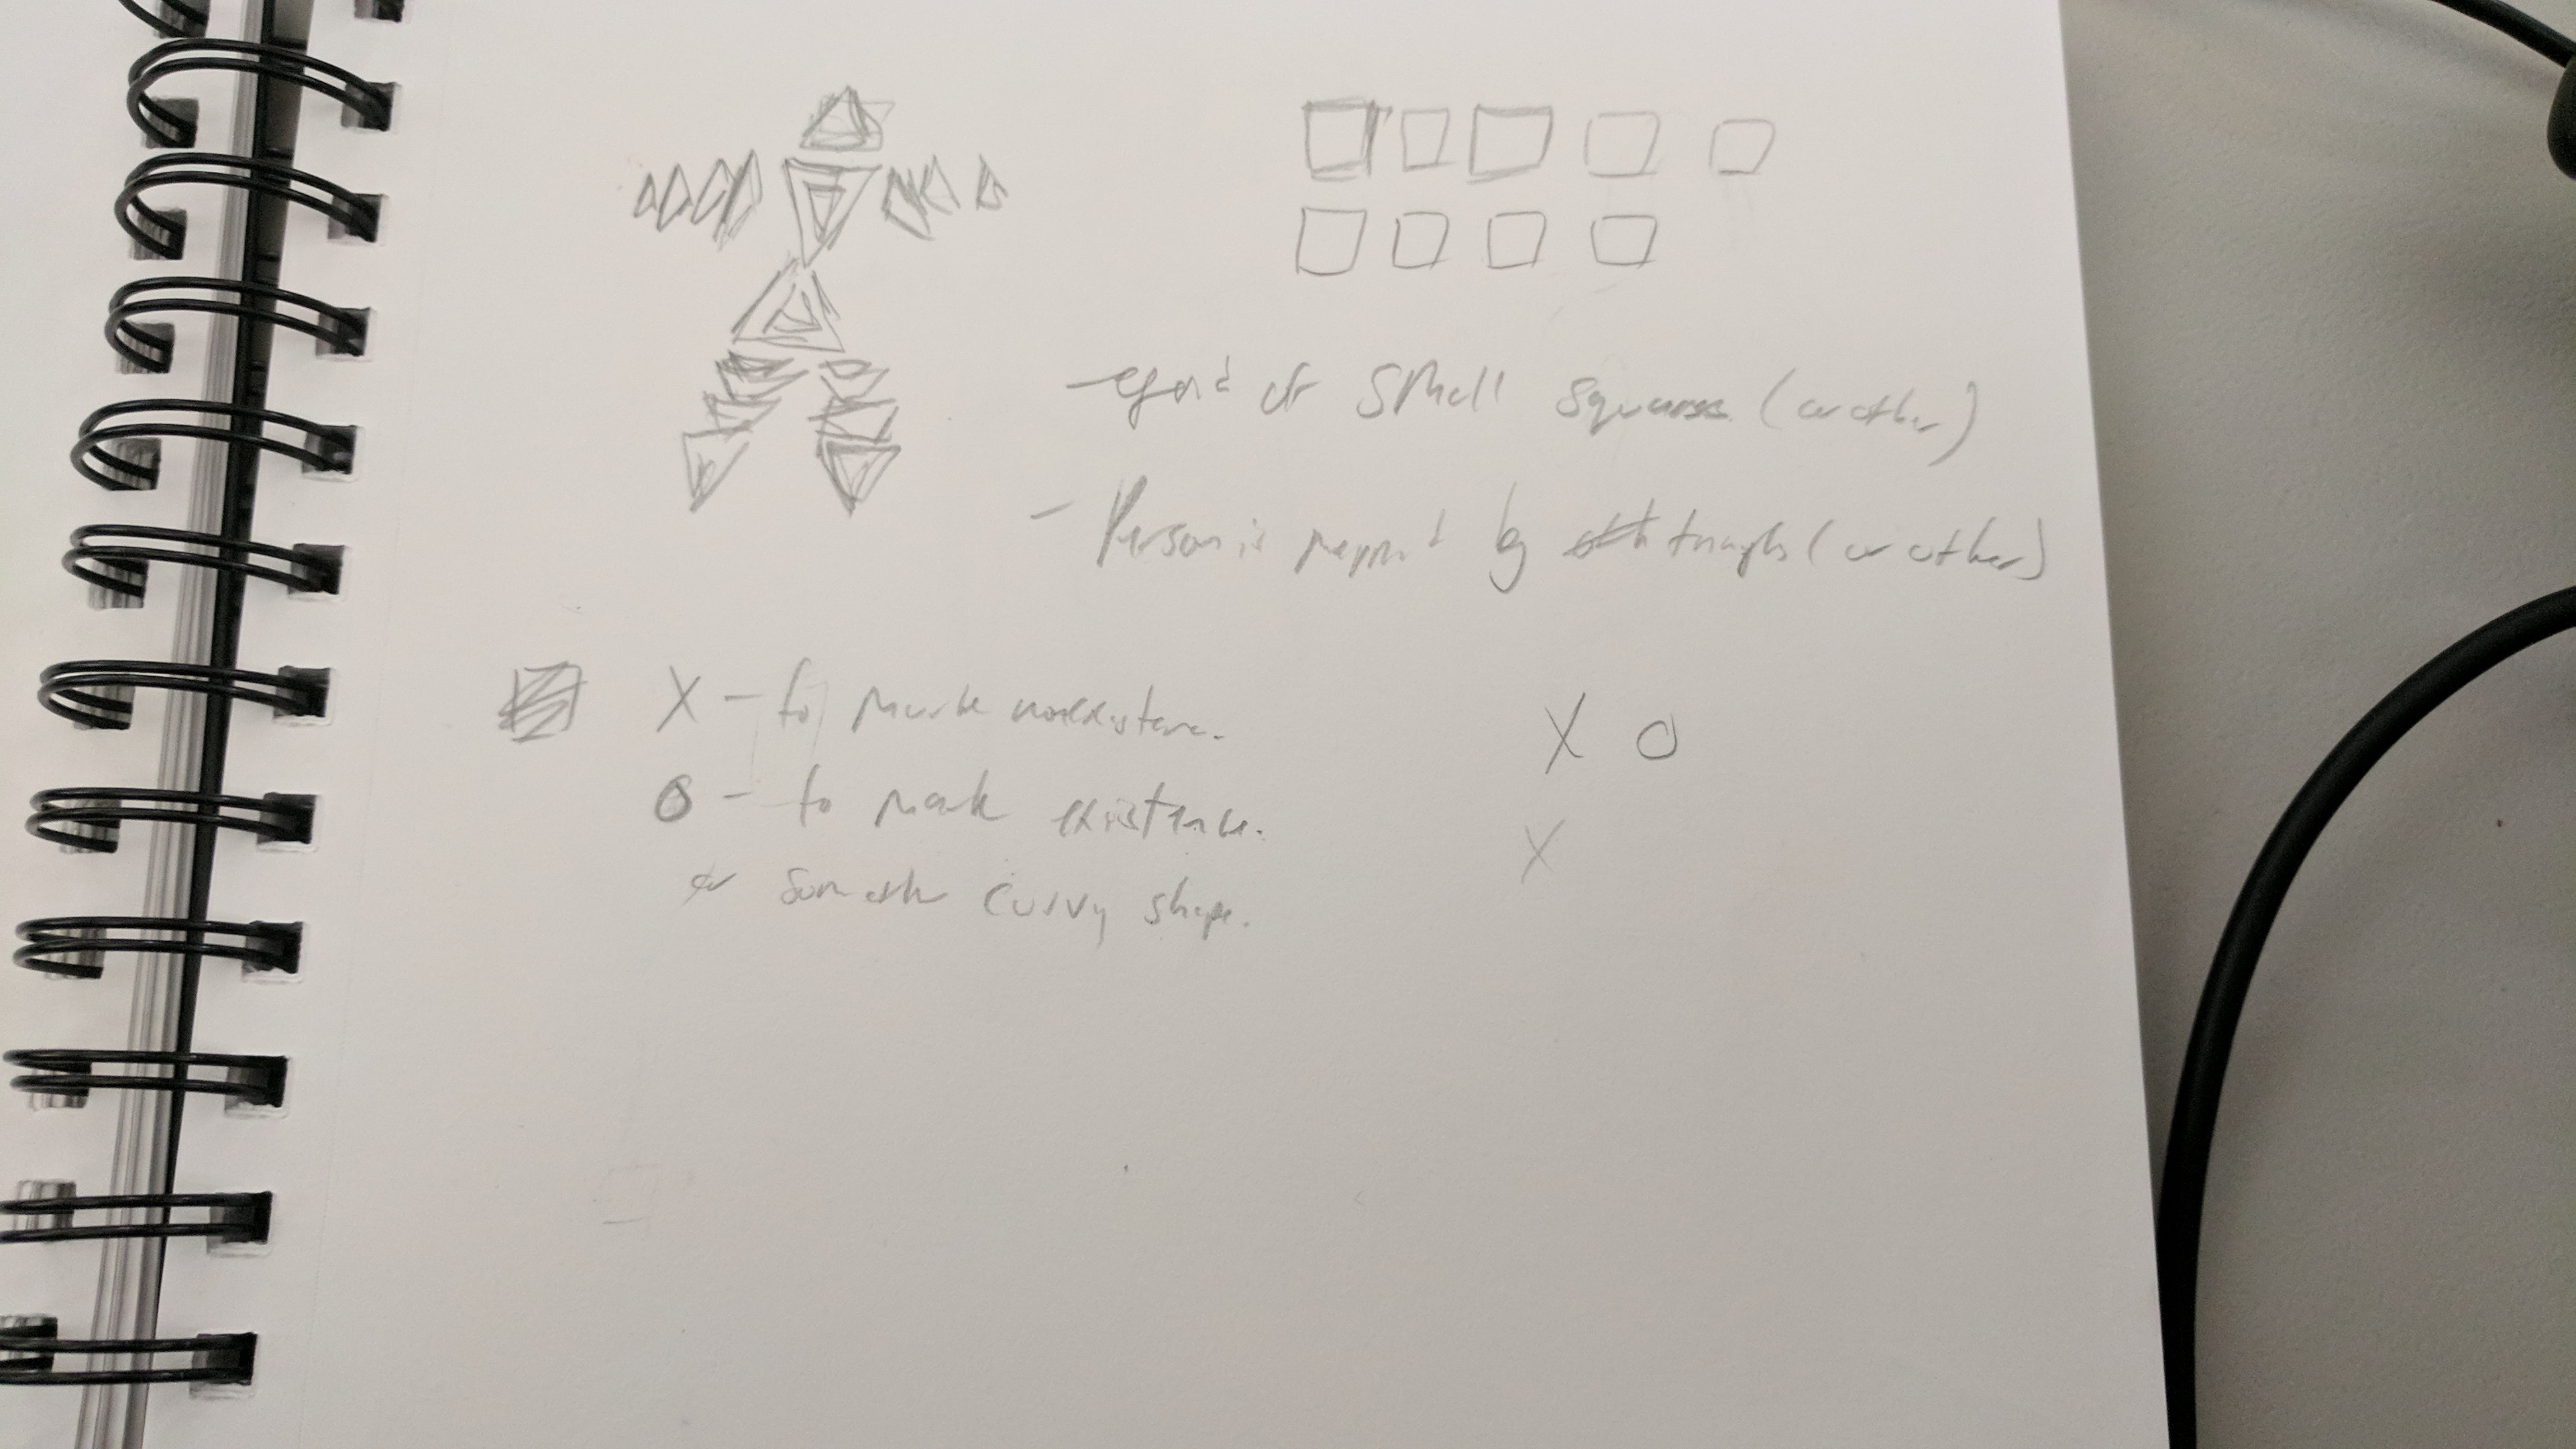 - grid of small squares (or other)
- Person is by triangles (or other)
X - to mark nonexistence.
O - to mark existence.
or some other curvy shape.
X O
X